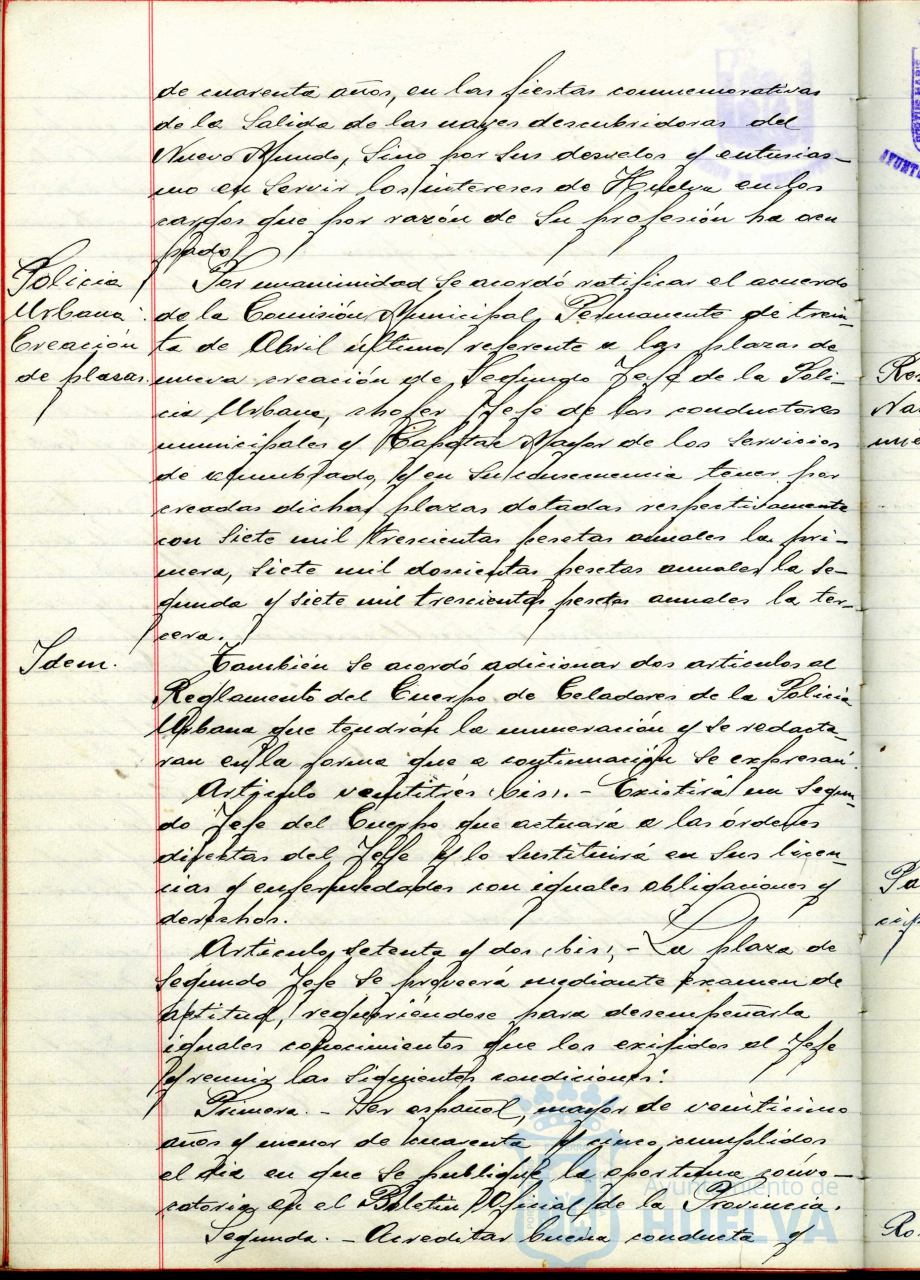 de cuarenta años, en las fiestas conmemorativas
de la Salida de las naves descubridoras del
Nuevo Mundo, Sino por sus desvelos y entusias-
mo en servir los intereses de Huelva en los
cargos que por razón de su profesión ha ocu
pado
Policia
Urbana:
Creación
de plazas.
Por unanimidad se acordó ratificar el acuerdo
de la Comisión Municipal Permanente de trein-
ta de Abril último referente a las plazas de
nueva creación de Segundo Jefe de la Poli-
cia Urbana, chofer Jefe de los conductores
municipales y Capataz Mayor de los Servicios
de alumbrado, y en su consecuencia tener por
creadas dichas plazas dotadas respectivamente
con siete mil trescientas pesetas anuales la pri-
mera, siete mil doscientas pesetas anuales la se-
gunda y siete mil trescientas pesetas anuales la ter-
cera.
Idem.
También se acordó adicionar dos articulos al
Reglamento del Cuerpo de Celadores de la Policia
Urbana que tendrán la numeración y se redacta-
ran en la forma que a continuación se expresan:
Articulo veintitrés (bis). - Existirá un Segun-
do Jefe del Cuerpo que actuará a las órdenes
directas del Jefe y lo sustituirá en sus licen-
cias y enfermedades con iguales obligaciones y
derechos.
Articulo setenta y dos (bis). - La plaza de
Segundo Jefe se proveerá mediante examen de
aptitud, requiriéndose para desempeñarla
iguales conocimientos que los exigidos al Jefe
y reunir las siguientes condiciones:
Primera. - Ser español, mayor de veinticinco
años y menor de cuarenta y cinco cumplidos
el dia en que se publique la oportuna convo-
catoria en el Boletin Oficial de la Provincia.
Segunda. - Acreditar buena conducta y
Ayuntamiento de
HUELVA